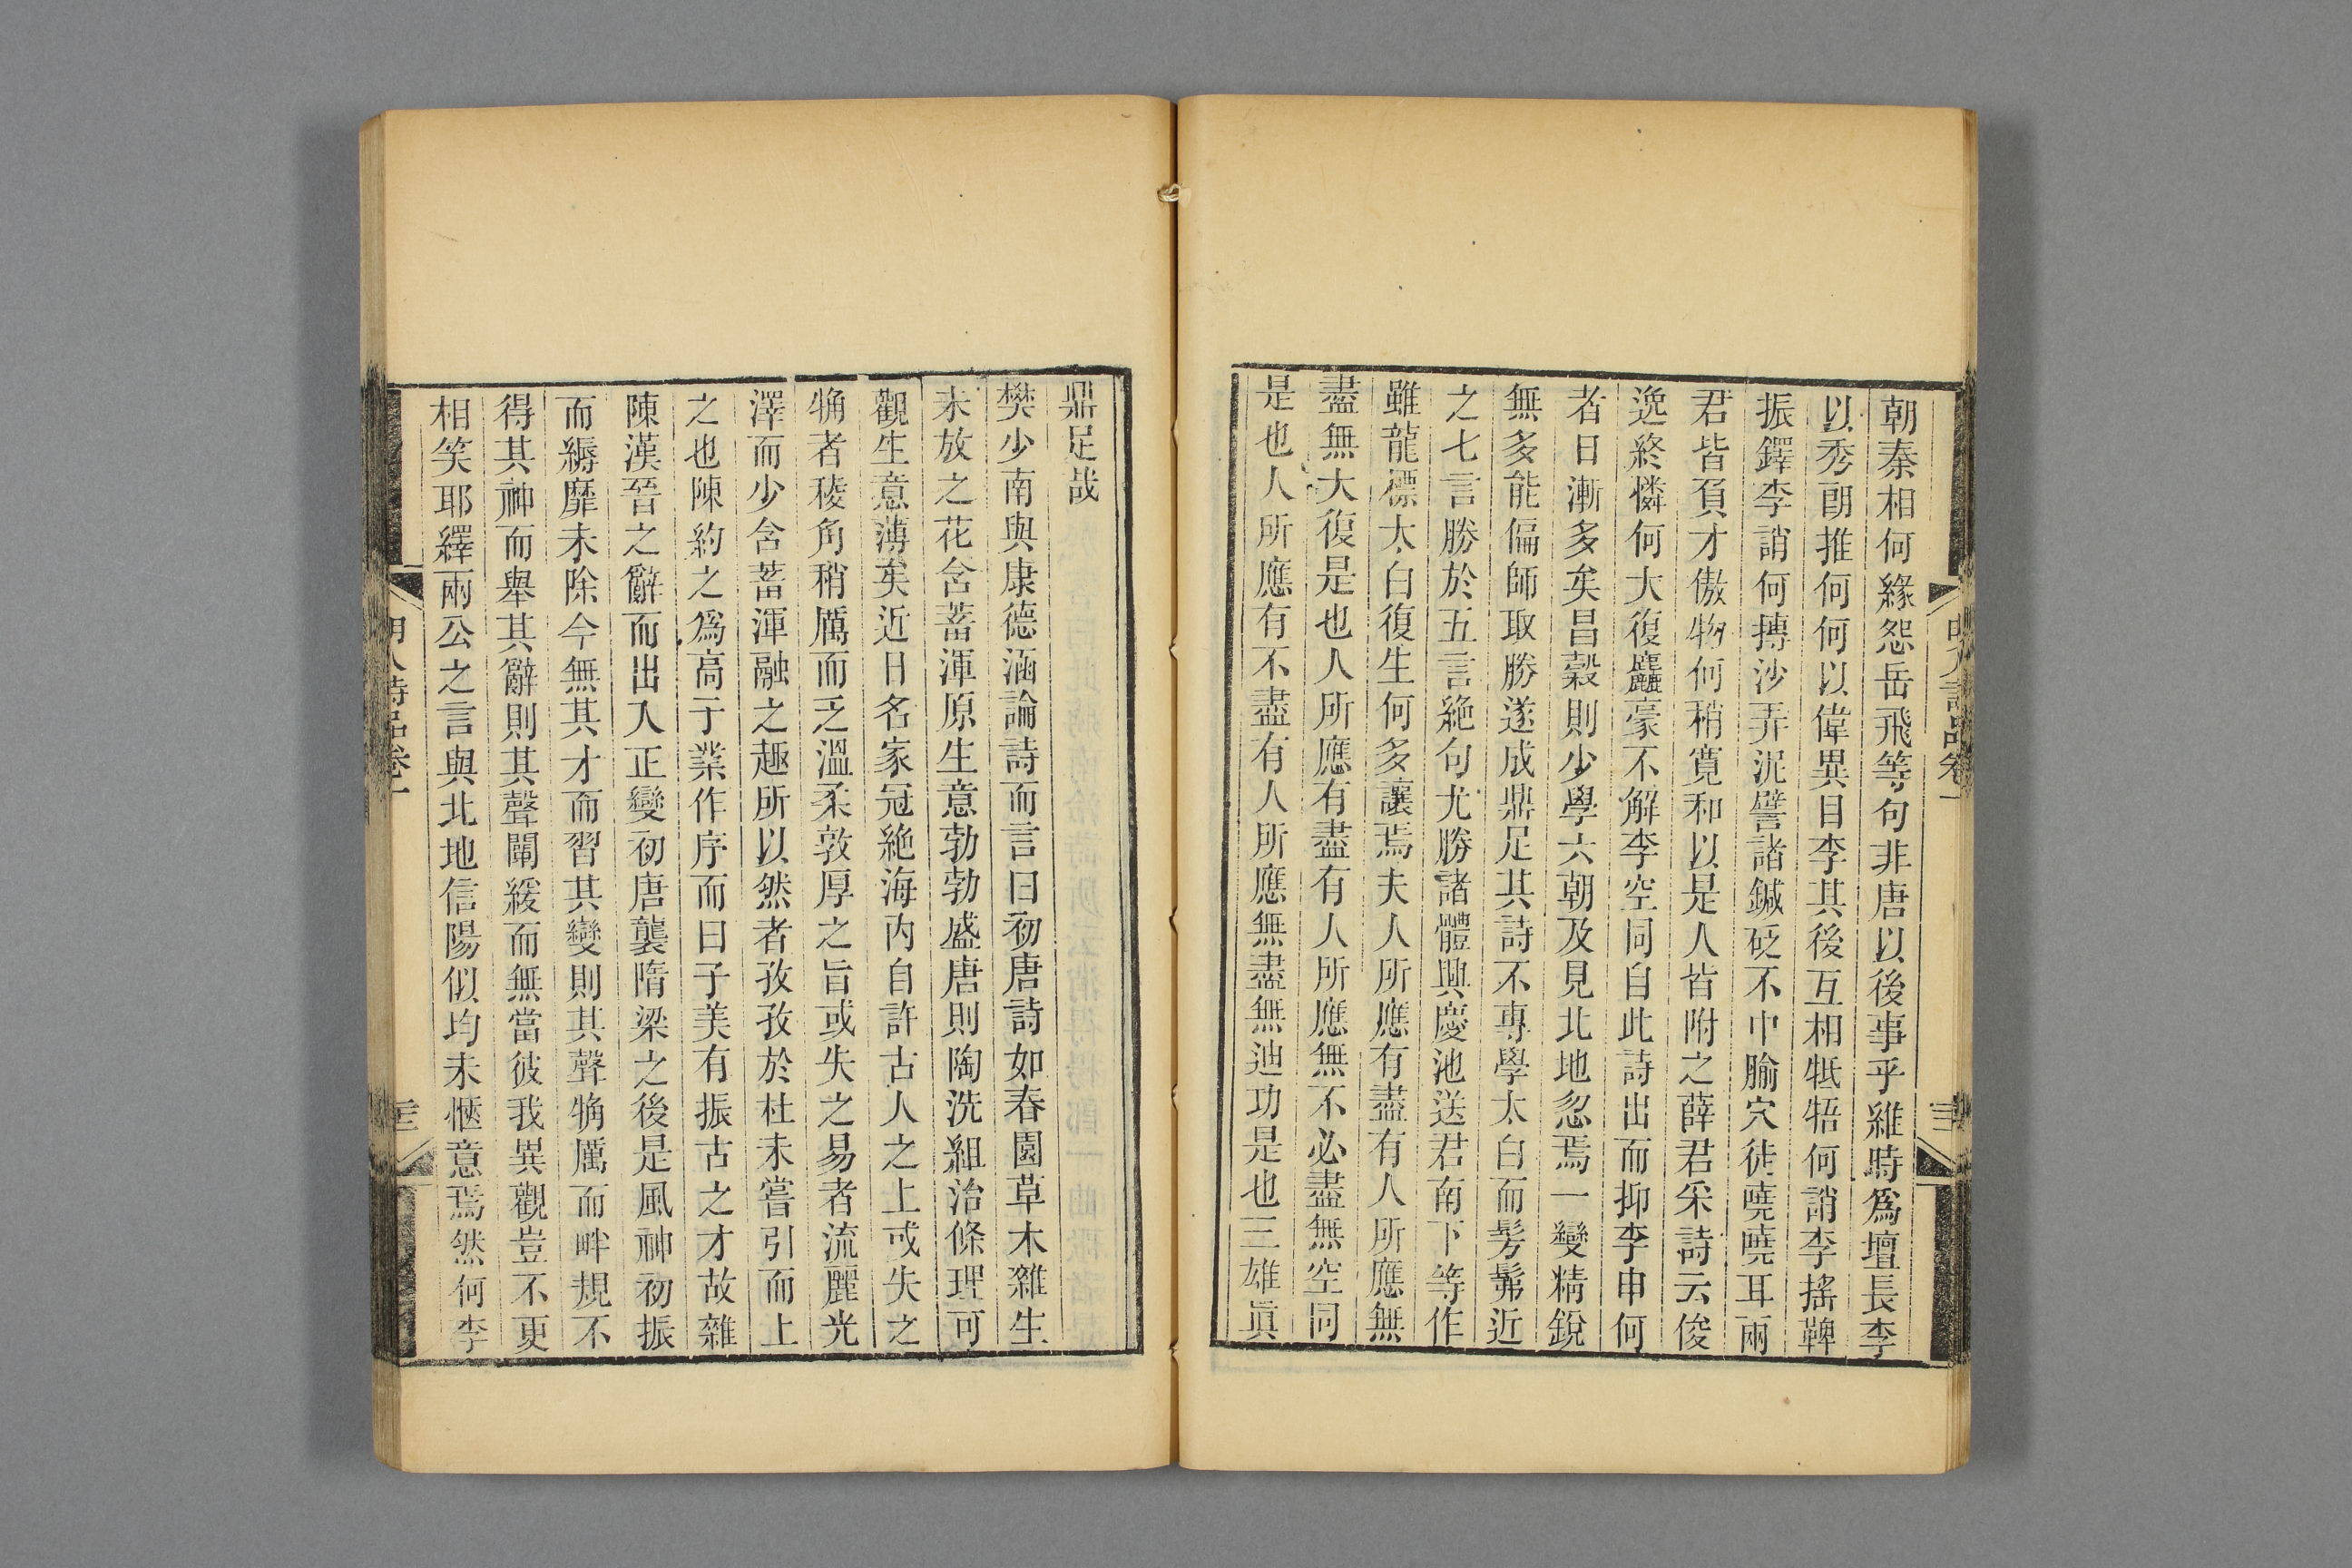 朝秦相何緣怨岳飛等句非唐以後事乎維時爲壇長李
以秀朗推何何以偉異目李其後互相牴牾何誚李搖鞞
振鐸李誚何摶沙弄泥譬諸鍼砭不中腧穴徒嘵嘵耳兩
君皆負才傲物何稍寬和以是人皆附之薛君采詩云俊
逸終憐何大復麤豪不解李空同自此詩出而抑李申何
者日漸多矣昌穀則少學六朝及見北地忽焉一變精銳
無多能偏師取勝遂成鼎足其詩不專學太白而髣髴近
之七言勝於五言絶句尤勝諸體興慶池送君南下等作
雖龍標太白復生何多讓焉夫人所應有盡有人所應無
盡無大復是也人所應有盡有人所應無不必盡無空同
是也人所應有不盡有人所應無盡無迪功是也三雄眞
明人詩品卷一
鼎足哉
樊少南與康德涵論詩而言曰初唐詩如春園草木雜生
未放之花含蓄渾原生意勃勃盛唐則陶洗組治條理可
觀生意薄矣近日名家冠絶海内自許古人之上或失之
觕者稜角稍厲而乏溫柔敦厚之旨或失之易者流麗光
澤而少含蓄渾融之趣所以然者孜孜於杜未嘗引而上
之也陳約之爲高子業作序而曰子美有振古之才故雜
陳漢晉之辭而出入正變初唐襲隋梁之後是風神初振
而縟靡未除今無其才而習其變則其聲觕厲而畔規不
得其神而舉其辭則其聲闡緩而無當彼我異觀豈不更
相笑耶繹兩公之言與北地信陽似均未愜意焉然何李
明人詩品卷一